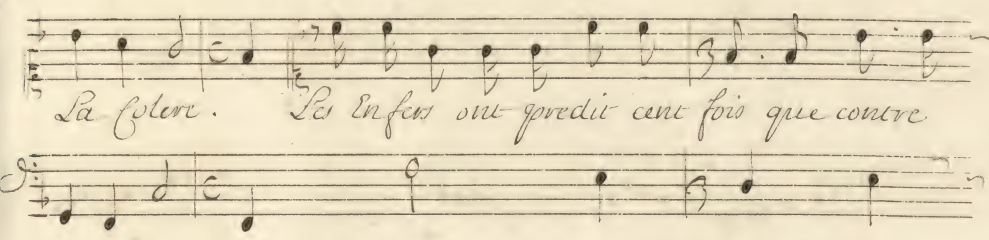 La Colere. Les Enfers ont predit cent fois que contre